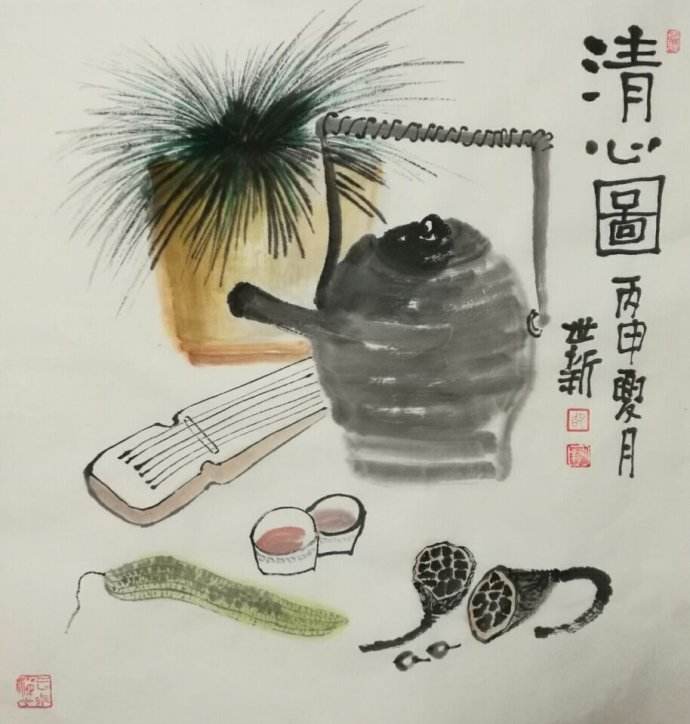 清心圖
丙申夏月
世新